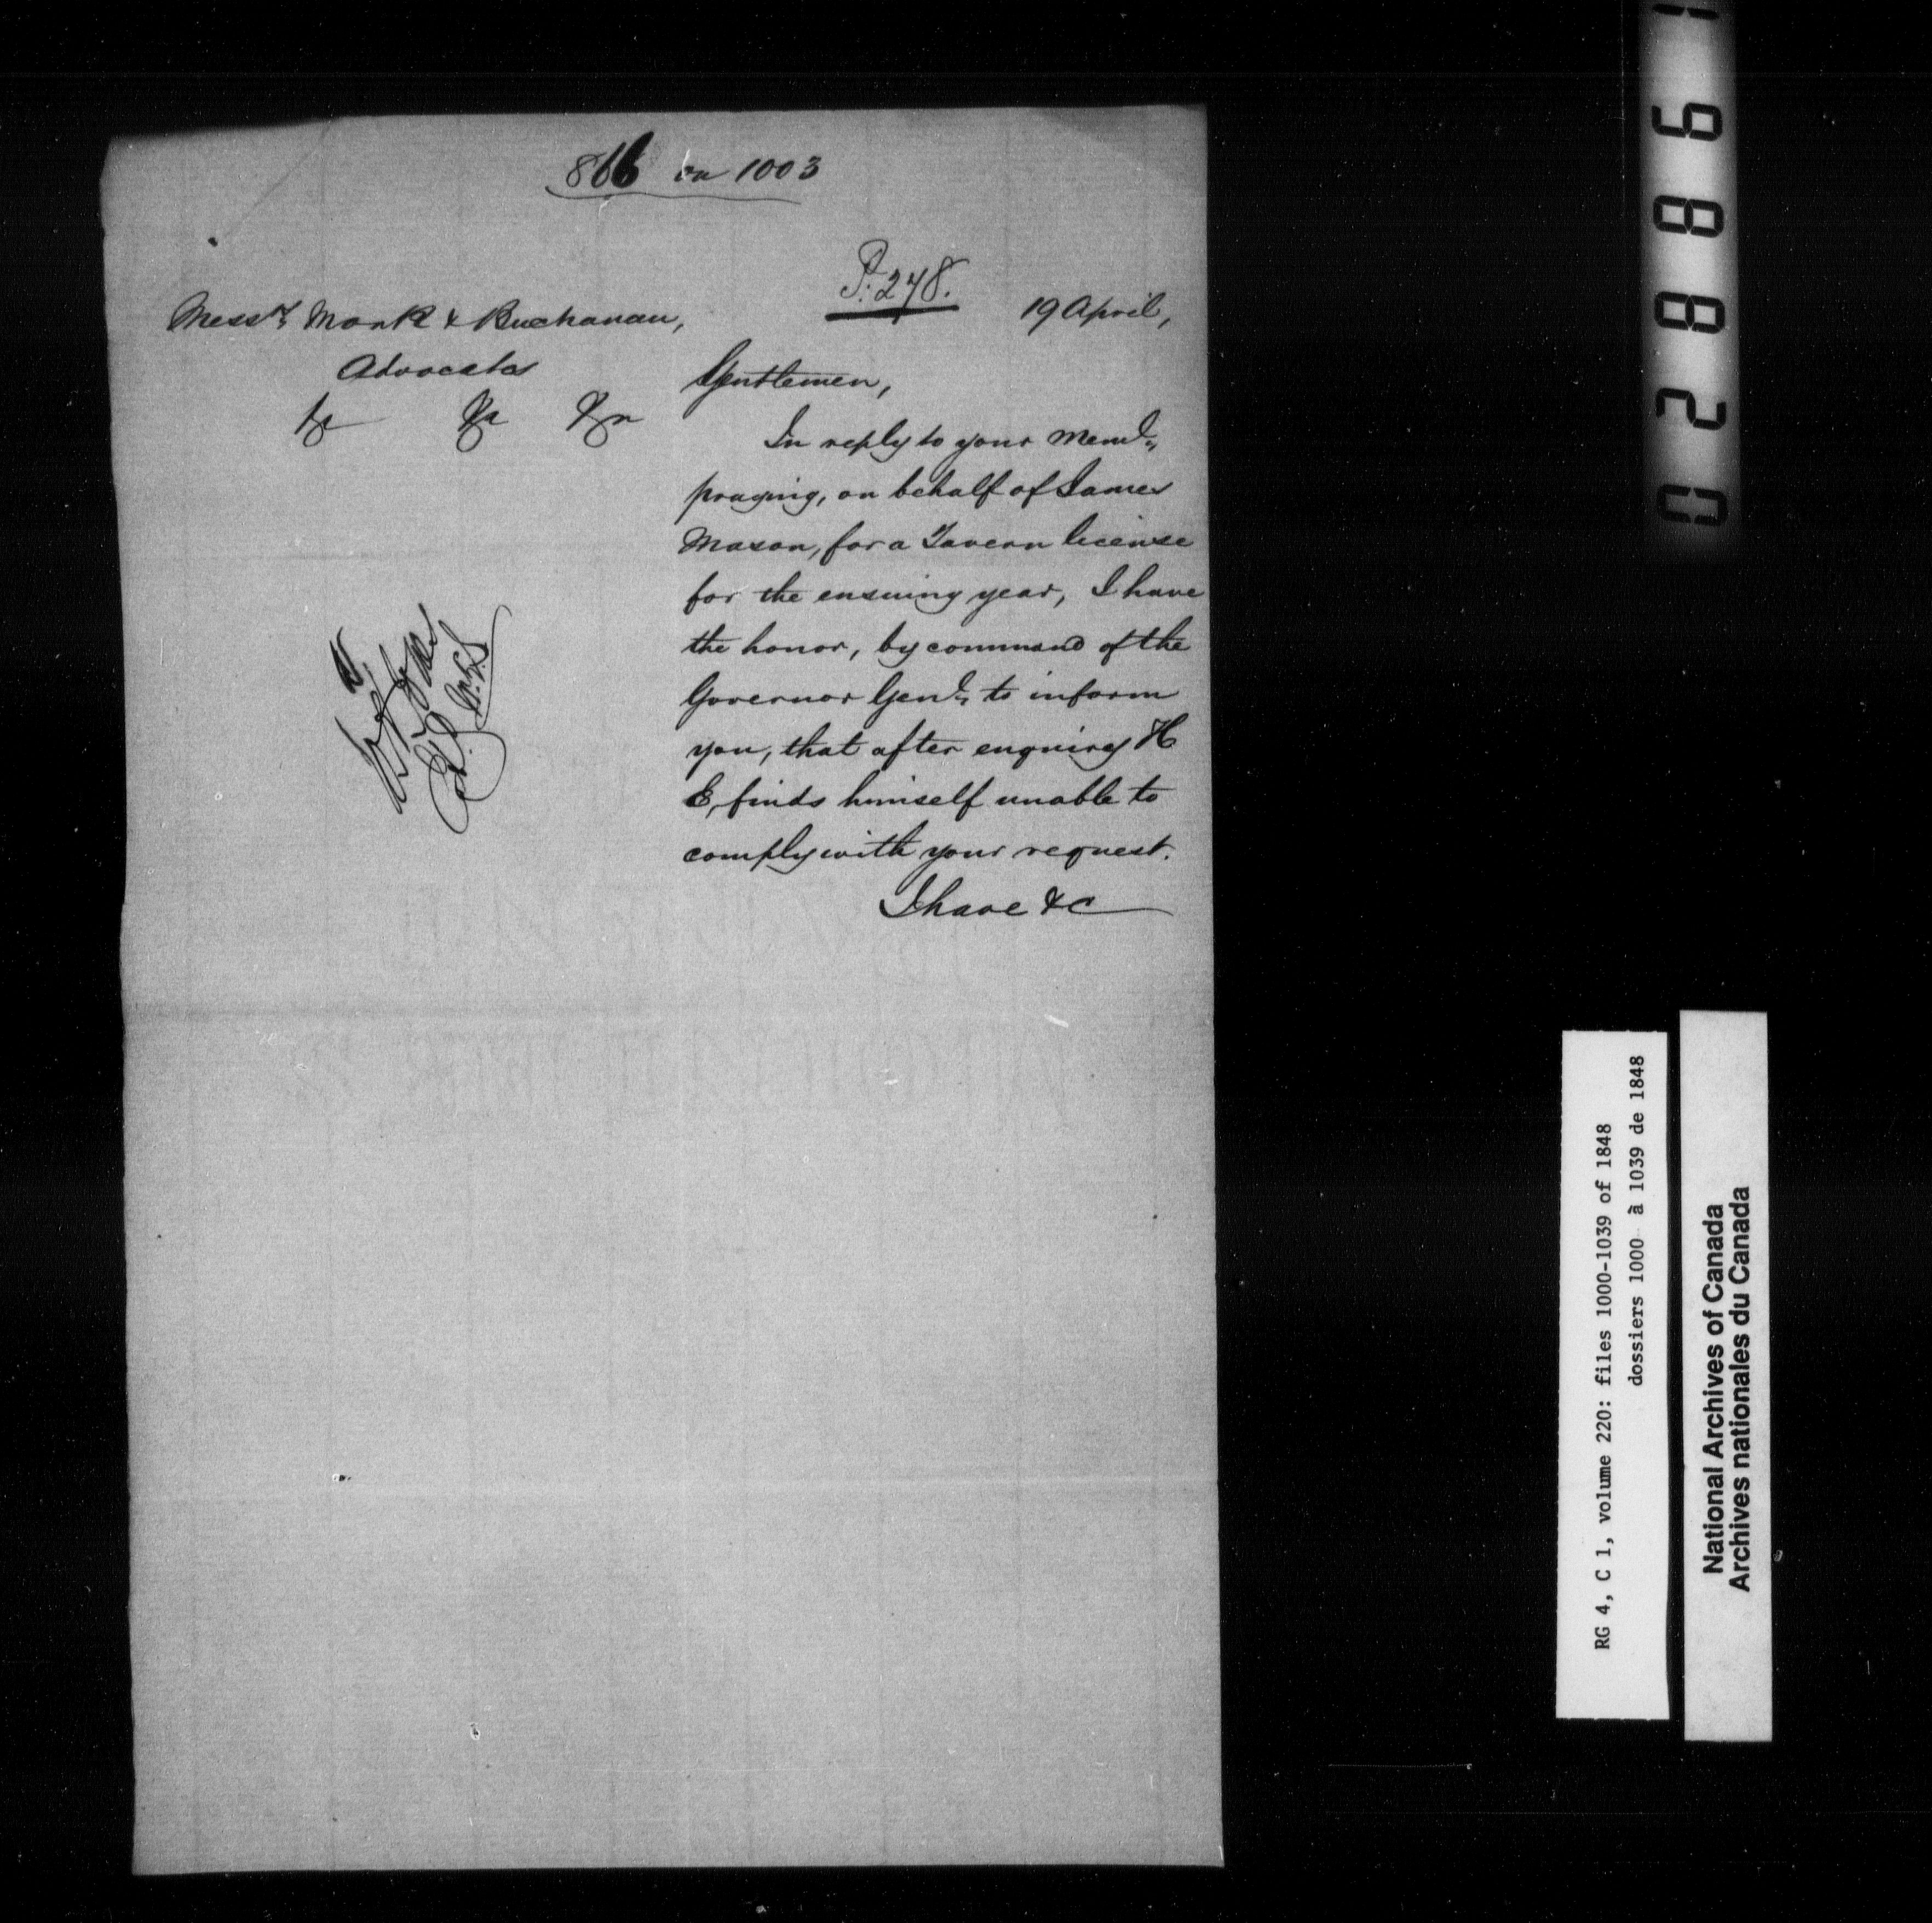 866 on 1003
P. 248.
Mess.rs Monk & Buchanan,
Advocates
&c &c &c
19 April,
Gentlemen,
In reply to your Meml.,
praying, on behalf of James
Mason, for a Tavern license
for the ensuing year, I have
the honor, by command of the
Governor Genl., to inform
you, that after enquiry H
E, finds himself unable to
comply with your request.
I have &c
028861
RG 4, C 1, volume 220: files 1000-1039 of 1848
dossiers 1000 à 1039 de 1848
National Archives of Canada
Archives nationales du Canada